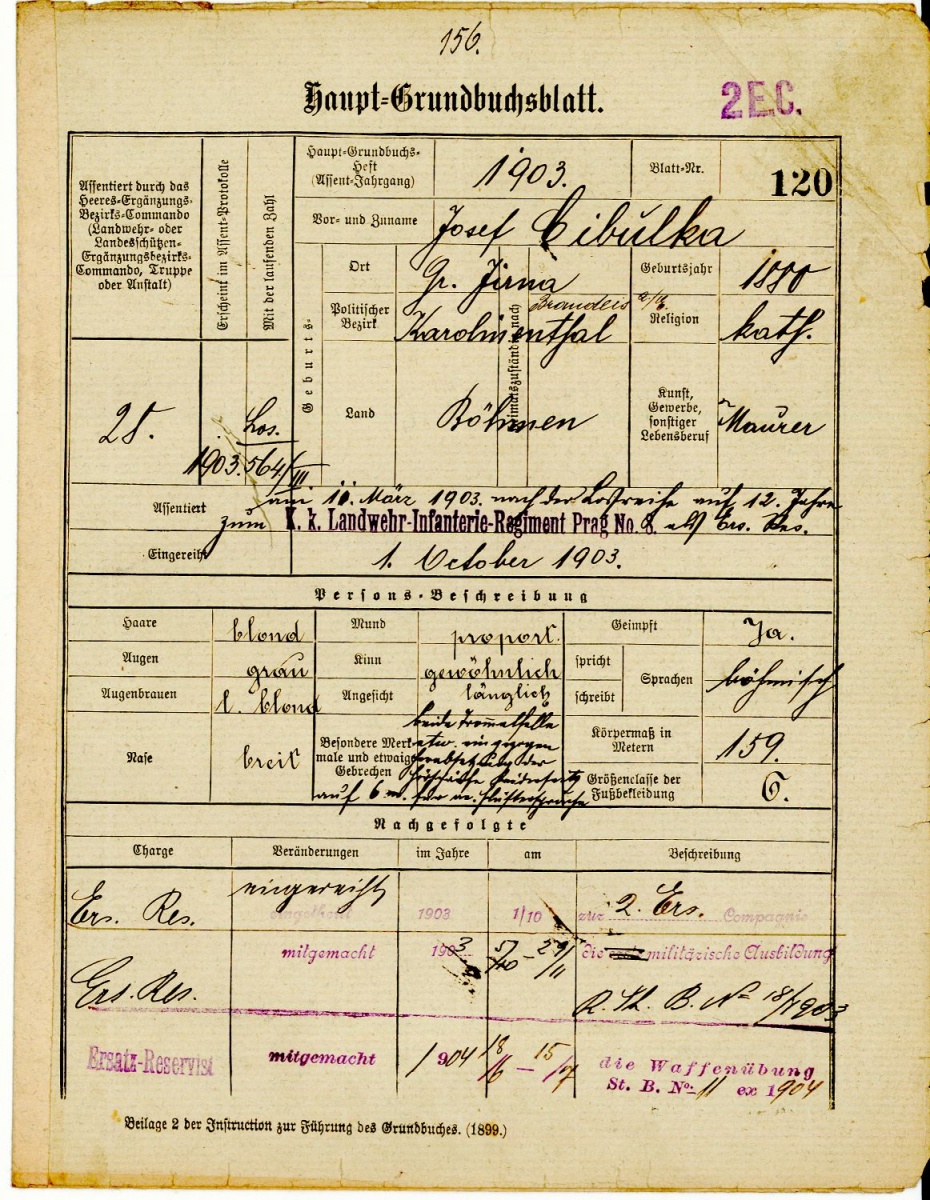 156.
Haupt-Grundbuchsblatt.
2 E.C.
Assentiert durch das
Heeres-Ergänzungs-
Bezirks-Commando
(Landwehr- oder
Landesschützen-
Ergänzungsbezirks-
Commando, Truppe
oder Anstalt)
Erscheint im Assent-Protokolle
Mit der laufenden Zahl
Haupt-Grundbuchs-
Heft
(Assent-Jahrgang)
1903.
Blatt-Nr.
120
Vor- und Zuname
Josef Cibulka
Geburts-
Ort
Gr. Jirna
Geburtsjahr
1880
Politischer
Bezirk
Karolinenthal
Heimatszuständig nach
Brandeis a/E.
Religion
kath.
28.
Los.
1903. 564/III
Land
Böhmen
Kunst,
Gewerbe,
sonstiger
Lebensberuf
Maurer
Assentiert
am 10. März 1903. nach der Losreihe auf 12 Jahre
zum K. k. Landwehr-Infanterie-Regiment Prag No. 8. als Ers. Res.
Eingereiht
1. October 1903.
Persons-Beschreibung
Haare
blond
Mund
proport.
Geimpft
Ja.
Augen
grau
Kinn
gewöhnlich
spricht
schreibt
Sprachen
böhmisch
Augenbrauen
l. blond
Angesicht
länglich
Nase
breit
Besondere Merk-
male und etwaige
Gebrechen
beide Trommelfelle
etw. eingezogen
Herabsetzung der
Hörschärfe beiderseits
auf 6 m. für m. Flüstersprache
Körpermaß in
Metern
159.
Größenclasse der
Fußbekleidung
6.
Nachgefolgte
Charge
Veränderungen
im Jahre
am
Beschreibung
Ers. Res.
eingereiht
eingetheilt
1903
1/10
zur 2. Ers. Compagnie
mitgemacht
1903
5/10 - 29/11
die militärische Ausbildung
Ers. Res.
R. St. B. No 18/1903
Ersatz-Reservist
mitgemacht
1904
18/6 - 15/7
die Waffenübung
St. B. No. 11 ex 1904
Beilage 2 der Instruction zur Führung des Grundbuches. (1899.)